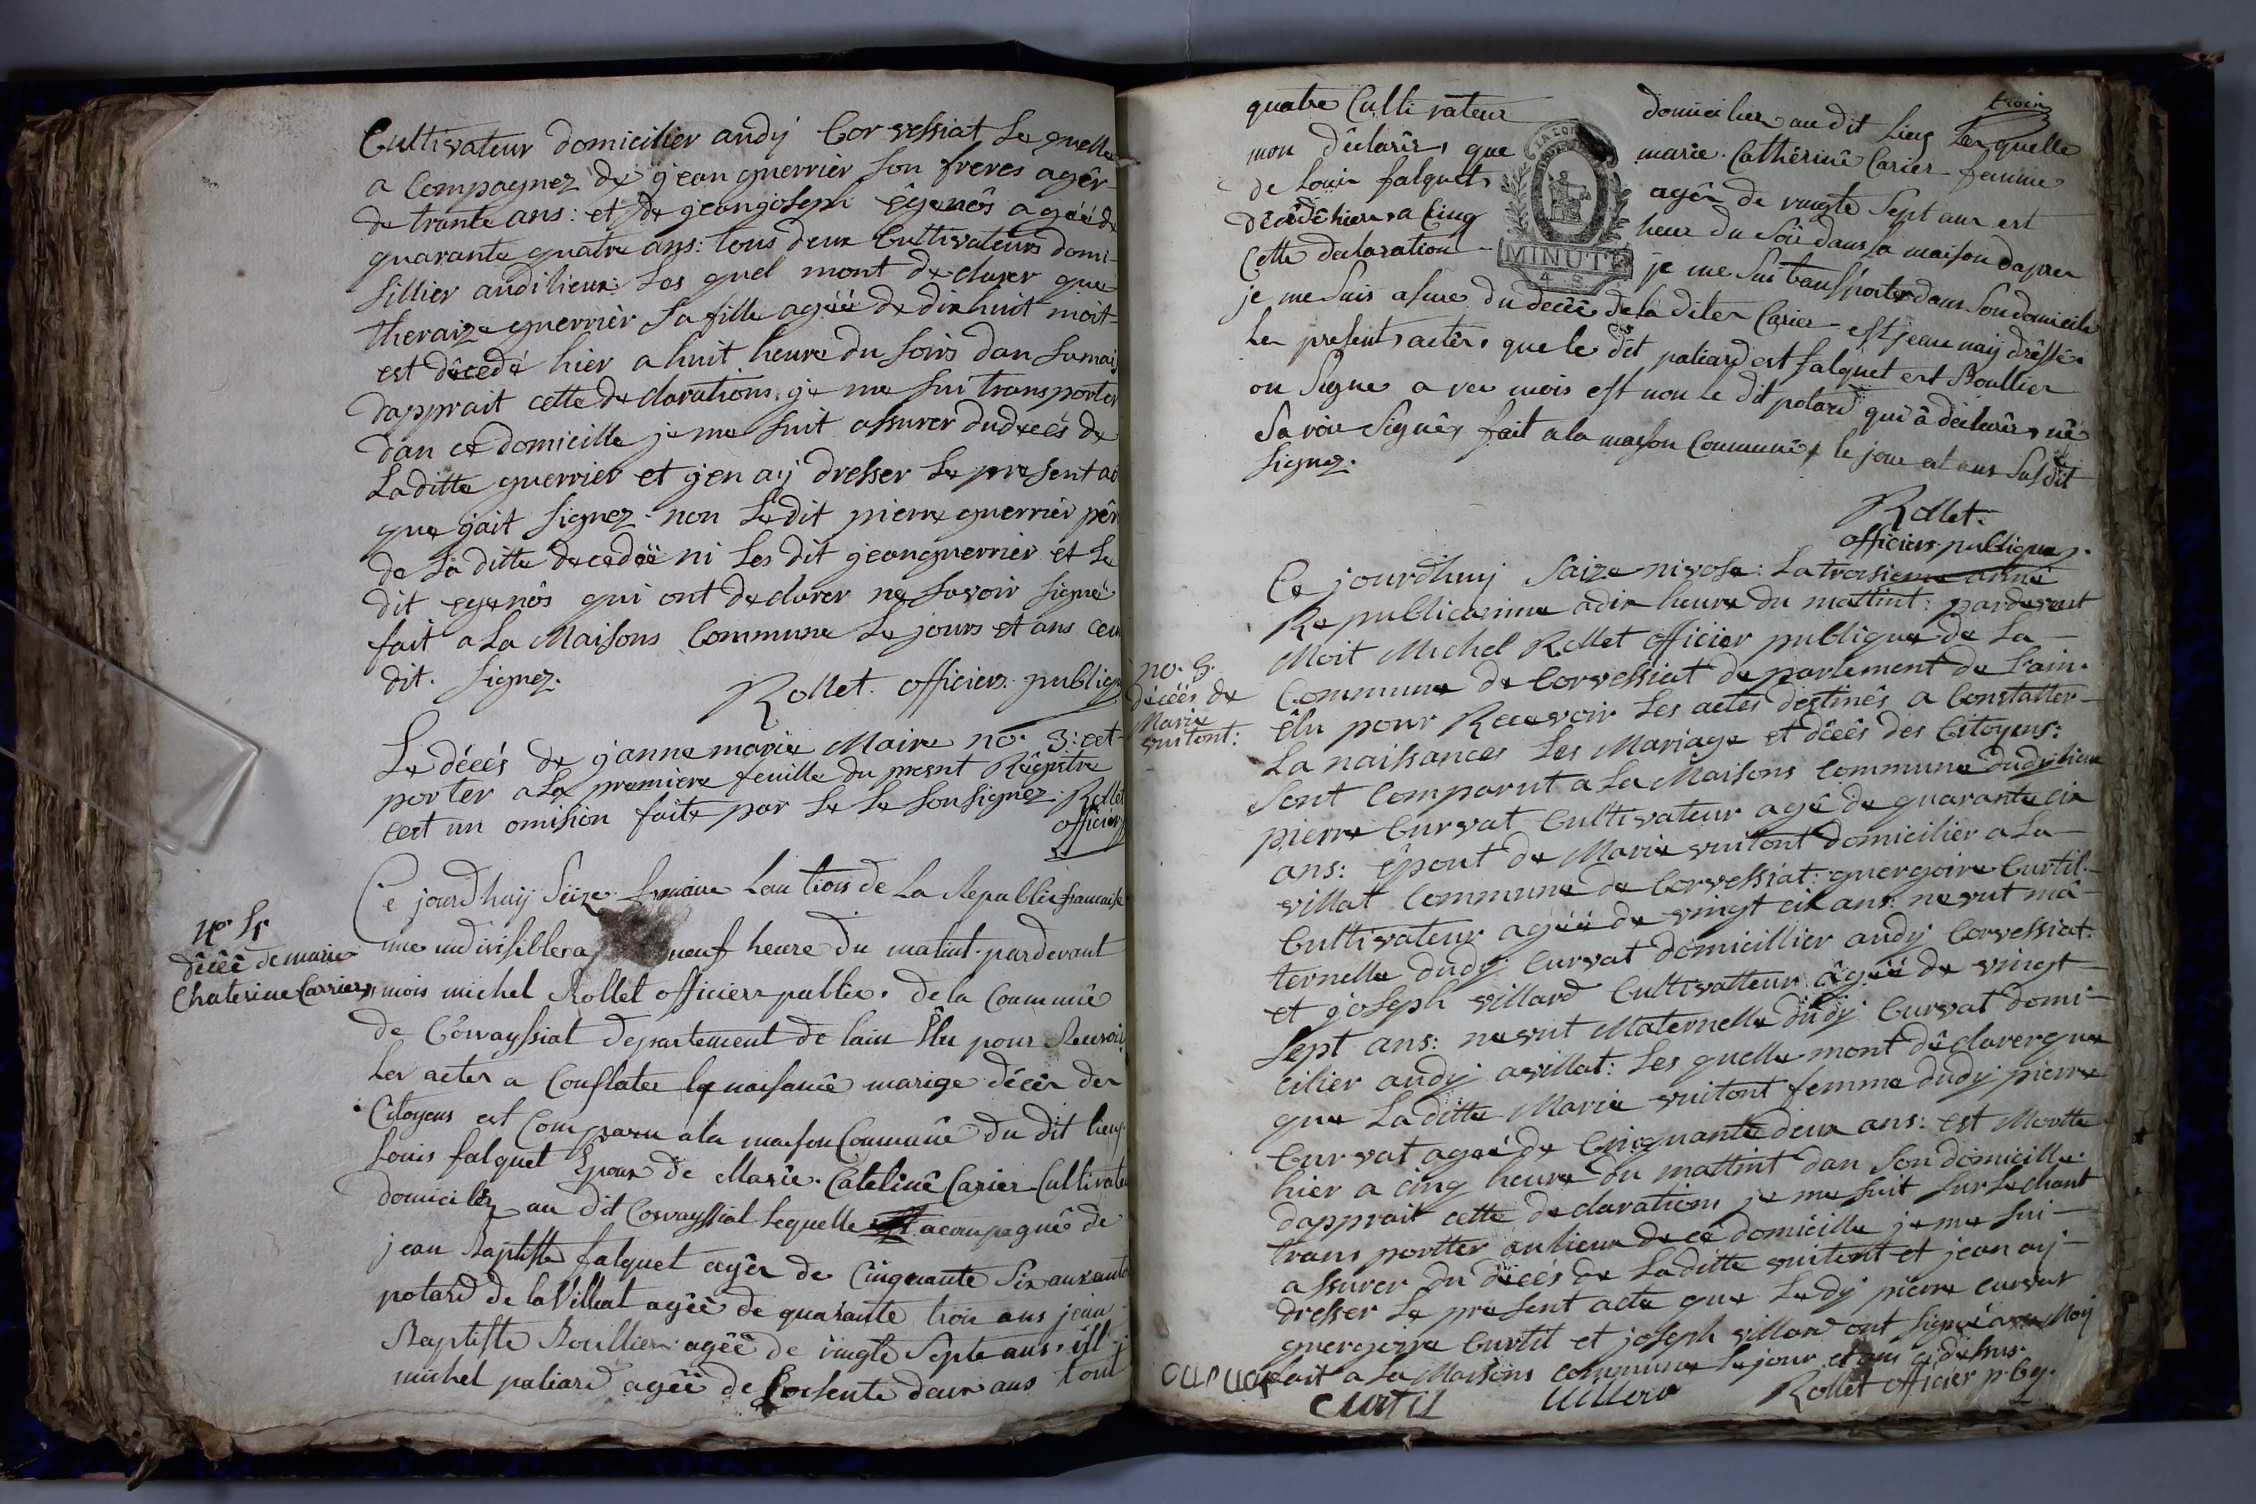 Cultivateur domicilier audy Corvessiat Le quelle
a Compagnez de jean guerrier son freres agér
de trante ans: et de jeanjoseph êgenôs agéé de
quarante quatre ans: tous deux Cultivateurs domi-
sillier audilieux Les quel mont declarer que
theraize guerrièr sa fille agéé de dix huit moit
est dêcedé hier a huit heure du soirs dan sa mais
dapprait cette declarations je me sui transporter
dan ce domicille je me suit assurer dudecés de
Laditte guerrier et j'en aÿ dresser Le present ac
que jait signez. non Ledit pierre guerrièr pér
de La ditte decedéé ni Les dit jeanguerrier et Le
dit egenôs qui ont declarer ne savoir signé
fait a La Maisons Commune Le jours et ans ceu
dit. signez.
Rollet officiers publique
Le décés de janne marie Maire no. 3: cet
porter a La premiere feuille du presnt Régistre
cert un omision faite par Le Le sonsignez Rollet
officier
no 4
décéé de marie
Chaterine Carrier
Ce jourdhuÿ seize Lan trois de La Republic francaise
une indivisible a neuf heure du matint pardevant
mois michel Rollet officiers public. de la Commune
de Corvayssiat departement de lain Elu pour Recevoir
Les actes a Constater la naisance marige décés des
Citoyens est Comparu ala maison Commune du dit lieux
Louis falquet Epoux de Marie Cateline Carier Cultivate
domicilés au dit Corvayssiat Lequelle acompagné de
jean Baptiste falquet agér de Cinquante Six ans
potard de la Villiat agéé de quarante trois ans jean
Baptiste Boullier agéé de vingte septe ans
michel paliard agéé de Soisente deux ans tout
trois
quatre Cultivateur domicilier au dit Lieux Les quelle
mon déclarés que marie Cathérine Carier femme
de Louis falquet agér de vingte Sept ans est
Décédé hiere a Cinq heur du Soir dans la maison dapres
Cette declaration je me suis transporte dans Son domicile
LA LOI
MINUTE
4 S
je me suis asure du deceé de la dites Carier est jeane naÿ dréssér
Les présents actes que le dit paliard est falquet est Boullier
on Signe a vec mois est non le dit potard qui à declaré né
Savoir Signér fait a la maison Commune le jour est ans Susdit
Signez.
Rollet.
officiers publique
no. 5.
décéés de
Marie
vuitont:
Ce jourdhuÿ saize nivose: La troisieme anné
Republicainne a dix heure du mattint: pardevent
Moit Michel Rollet officier publique de La
Commune de Corvessiat departement de L'ain.
élu pour Recevoir Les actes destinés a Constatter
La naissances Les Mariage et décés des Citoyens:
Sont Comparut a La Maisons Commune dudy lieux
pierre Curvat Cultivateur agé de quarante cix
ans: épout de Marie vuitont domicilier a La
villat Commune de Corvessiat: guergoire Curtil.
Cultivateur agéé de vingt cix ans: nevut ma-
ternelle dudy Curvat domicillier audy Corvessiat.
et joseph villard Cultivatteur agéé de vingt
sept ans: nevut Maternelle dudy Curvat domi-
cilier audy avillat: Les quelle mont déclarer que
que Laditte Marie vuitont femme dudy pierre
Curvat agée de Cinquante deux ans: est Mortte
hier a cinq heure du mattint dan son domicille
dapprait cette declaration je me suit sur Le chant
trans portter aulieux de ce domicille je me sui
assurer du décés de Laditte vuitont et jean aÿ
dresser Le present acte que Ledy pierre curvat
guergoire Curtil et joseph villard ont signé avec Moÿ
fait a La Maisons commune Le jour et ans ci dessus.
curtil Rollet officier p.bq.